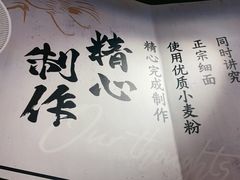 同时讲究
正宗细面
使用优质小麦粉
精心完成制作
精心
制作